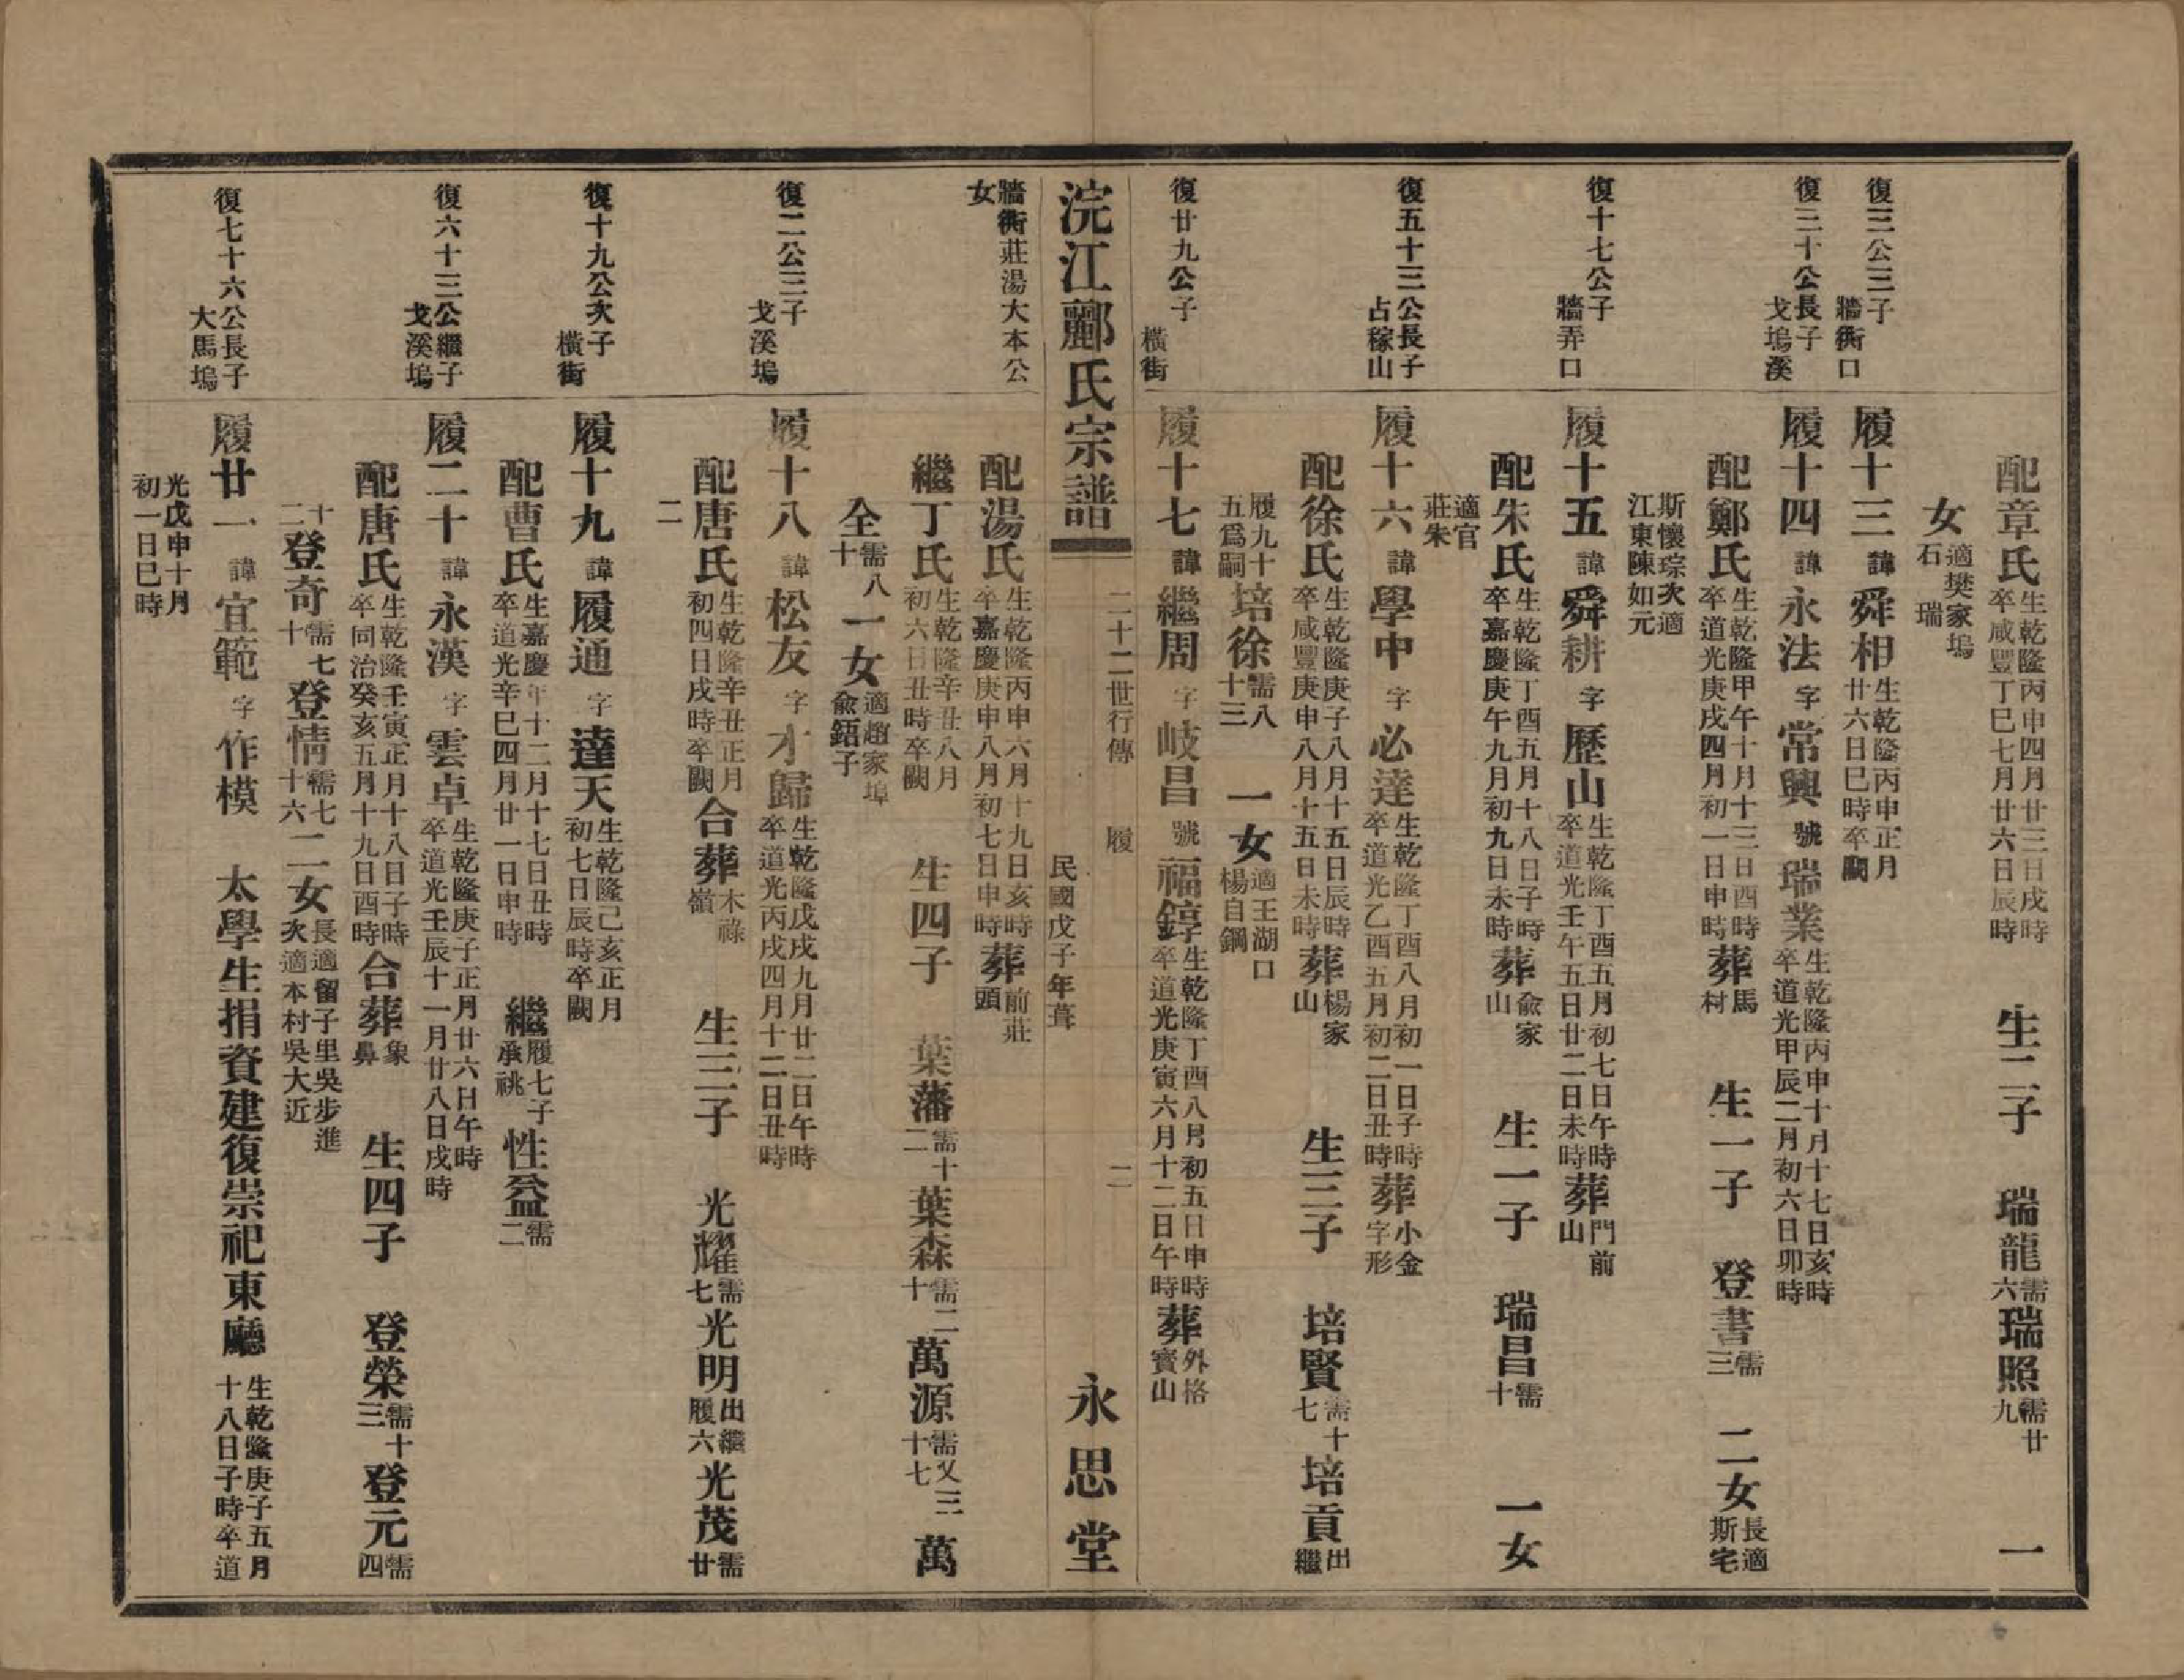 配章氏生乾隆丙申四月廿三日戌時卒咸豐丁巳七月廿六日辰時 生二子 瑞龍需六瑞照需廿九 一
女適樊家塢石瑞
復三公三子牆衖口 履十三諱舜相生乾隆丙申正月廿六日巳時卒闕
復三十公長子戈塢溪 履十四諱永法字常興號瑞業生乾隆丙申十月十七日亥時卒道光甲辰二月初六日卯時
配鄭氏生乾隆甲午十月十三日酉時卒道光庚戌四月初一日申時葬馬村 生一子 登書需三 二女長適斯宅
斯懷琮次適江東陳如元
復十七公子牆弄口 履十五諱舜耕字歷山生乾隆丁酉五月初七日午時卒道光壬午五日廿二日未時葬門前山
配朱氏生乾隆丁酉五月十八日子時卒嘉慶庚午九月初九日未時葬俞家山 生一子 瑞昌需十 一女
適官莊朱
復五十三公長子占稼山 履十六諱學中字必達生乾隆丁酉八月初一日子時卒道光乙酉五月初二日丑時葬小金字形
配徐氏生乾隆庚子八月十五日辰時卒咸豐庚申八月十五日未時葬楊家山 生三子 培賢需十七培貢出繼
履九十五爲嗣培徐需八十三 一女適王湖口楊自鋼
復廿九公子橫街 履十七諱繼周字岐昌號福錞生乾隆丁酉八月初五日申時卒道光庚寅六月十二日午時葬外格寶山
浣江酈氏宗譜 二十二世行傳 履 民國戊子年葺 二 永思堂
牆衖莊湯大本公女 配湯氏生乾隆丙申六月十九日亥時卒嘉慶庚申八月初七日申時葬前莊頭
繼丁氏生乾隆辛丑八月初六日丑時卒闕 生四子 葉藩需十二葉森需二十萬源需又三十七萬
全需八十一女適趙家埠俞鋙子
復二公三子戈溪塢 履十八諱松友字才歸生乾隆戊戌九月廿二日午時卒道光丙戌四月十二日丑時
配唐氏生乾隆辛丑正月初四日戌時卒闕合葬木祿嶺 生三子 光耀需七光明出繼履六光茂需廿
二
復十九公次子橫街 履十九諱履通字達天生乾隆己亥正月初七日辰時卒闕
配曹氏生嘉慶年十二月十七日丑時卒道光辛巳四月廿一日申時 繼履七子承祧性益需二
復六十三公繼子戈溪塢 履二十諱永漢字雲卓生乾隆庚子正月廿六日午時卒道光壬辰十一月廿八日戌時
配唐氏生乾隆壬寅正月十八日子時卒同治癸亥五月十九日酉時合葬象鼻 生四子 登榮需十三登元需四
十二登奇需七十登情需七十六二女長適留子里吳步進次適本村吳大近
復七十六公長子大馬塢 履廿一諱宜範字作模 太學生捐資建復崇祀東廳生乾隆庚子五月十八日子時卒道
光戊申十月初一日巳時